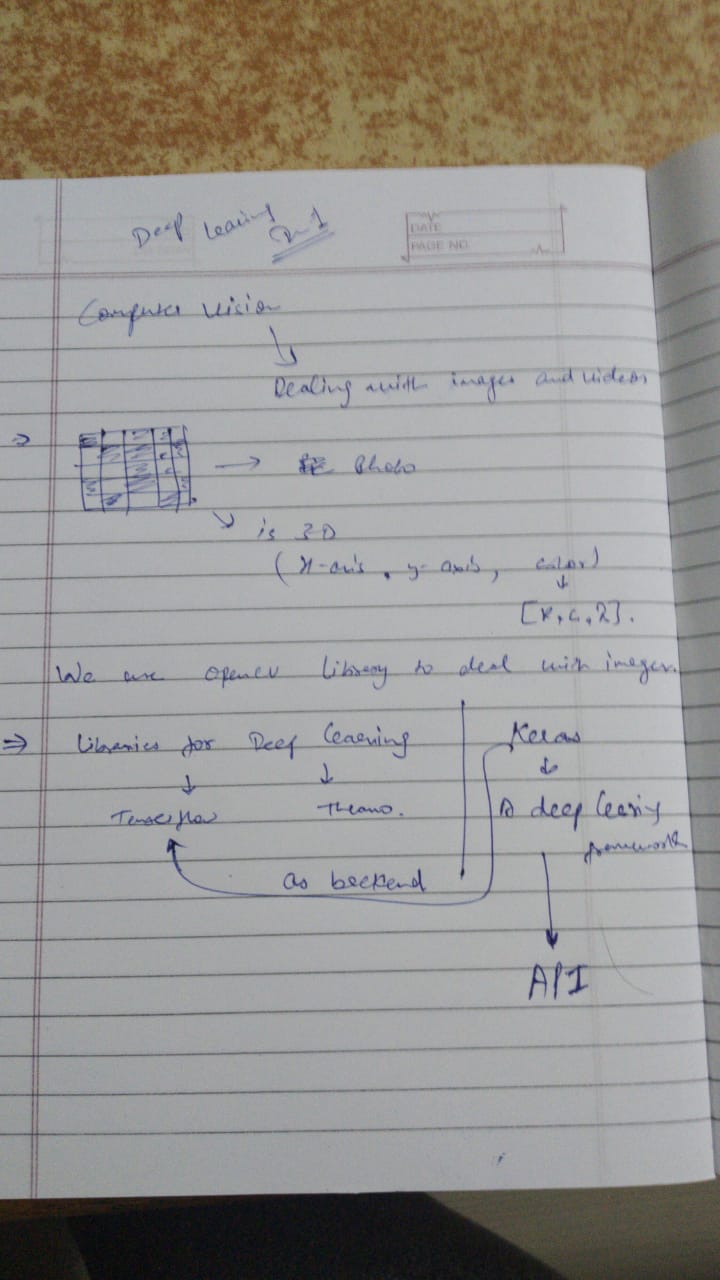 Deep Learning
DATE
PAGE NO.
Computer Vision
Dealing with images and videos
⇒
→ Photo
is 3D
(X-axis, y-axis, color)
We use opencv library to deal with images.
⇒ Libraries for Deep Learning
Keras
Tensorflow
Theano.
A deep learning
framework
as backend
API